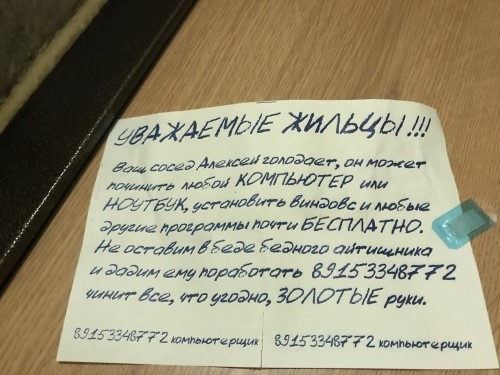 УВАЖАЕМЫЕ ЖИЛЬЦЫ!!!
Ваш сосед Алексей голодает, он может
починить любой КОМПЬЮТЕР или
НОУТБУК, установить виндовс и любые
другие программы почти БЕСПЛАТНО.
Не оставим в беде бедного айтишника
и дадим ему поработать 89153348772
чинит все, что угодно, ЗОЛОТЫЕ руки.
89153348772 компьютерщик
89153348772 компьютерщик